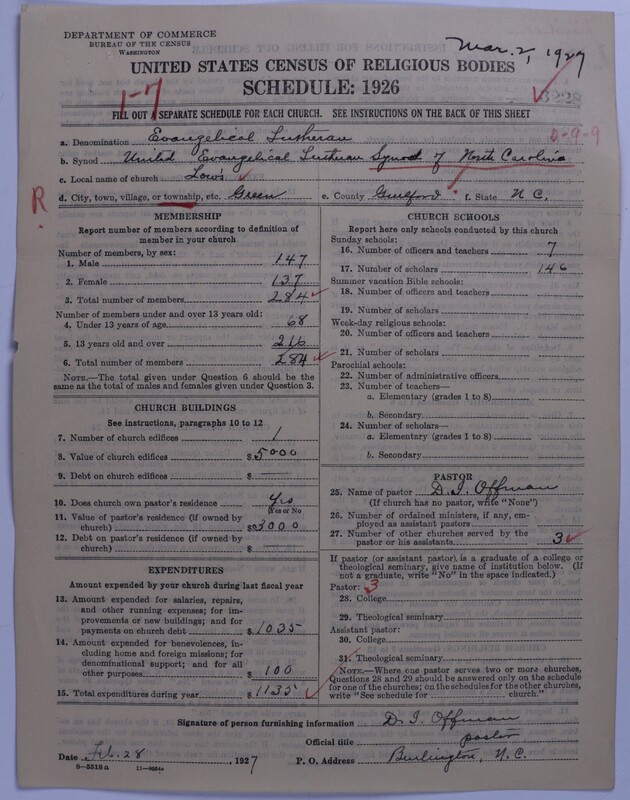 DEPARTMENT OF COMMERCE
BUREAU OF THE CENSUS
WASHINGTON
Mar. 2, 1927
UNITED STATES CENSUS OF RELIGIOUS BODIES
SCHEDULE: 1926
1-7
FILL OUT A SEPARATE SCHEDULE FOR EACH CHURCH. SEE INSTRUCTIONS ON THE BACK OF THIS SHEET
a. Denomination Evangelical Lutheran
0-9-9
b. Synod United Evangelical Lutheran Synod of North Carolina
c. Local name of church Low's
R.
d. City, town, village, or township, etc. Green e. County Guilford f. State N C.
MEMBERSHIP
Report number of members according to definition of
member in your church
Number of members, by sex:
1. Male 147
2. Female 137
3. Total number of members 284
Number of members under and over 13 years old:
4. Under 13 years of age 68
5. 13 years old and over 216
6. Total number of members 284
NOTE.—The total given under Question 6 should be the
same as the total of males and females given under Question 3.
CHURCH BUILDINGS
See instructions, paragraphs 10 to 12
7. Number of church edifices 1
8. Value of church edifices $5000
9. Debt on church edifices $ —
10. Does church own pastor's residence Yes
(Yes or No)
11. Value of pastor's residence (if owned by
church) $3000
12. Debt on pastor's residence (if owned by
church) $ —
EXPENDITURES
Amount expended by your church during last fiscal year
13. Amount expended for salaries, repairs,
and other running expenses; for im-
provements or new buildings; and for
payments on church debt $1035
14. Amount expended for benevolences, in-
cluding home and foreign missions; for
denominational support; and for all
other purposes $100
15. Total expenditures during year $1135
CHURCH SCHOOLS
Report here only schools conducted by this church
Sunday schools:
16. Number of officers and teachers 7
17. Number of scholars 146
Summer vacation Bible schools:
18. Number of officers and teachers
19. Number of scholars
Week-day religious schools:
20. Number of officers and teachers
21. Number of scholars
Parochial schools:
22. Number of administrative officers
23. Number of teachers—
a. Elementary (grades 1 to 8)
b. Secondary
24. Number of scholars—
a. Elementary (grades 1 to 8)
b. Secondary
PASTOR
25. Name of pastor D. I. Offman
(If church has no pastor, write "None")
26. Number of ordained ministers, if any, em-
ployed as assistant pastors
27. Number of other churches served by the
pastor or his assistants 3
If pastor (or assistant pastor) is a graduate of a college or
theological seminary, give name of institution below. (If
not a graduate, write "No" in the space indicated.)
Pastor: 3
28. College
29. Theological seminary
Assistant pastor:
30. College
31. Theological seminary
NOTE.—Where one pastor serves two or more churches,
Questions 28 and 29 should be answered only on the schedule
for one of the churches; on the schedules for the other churches,
write "See schedule for church."
Signature of person furnishing information D. I. Offman
Official title pastor
Date Feb. 28, 1927 P. O. Address Burlington, N. C.
8-5518 a